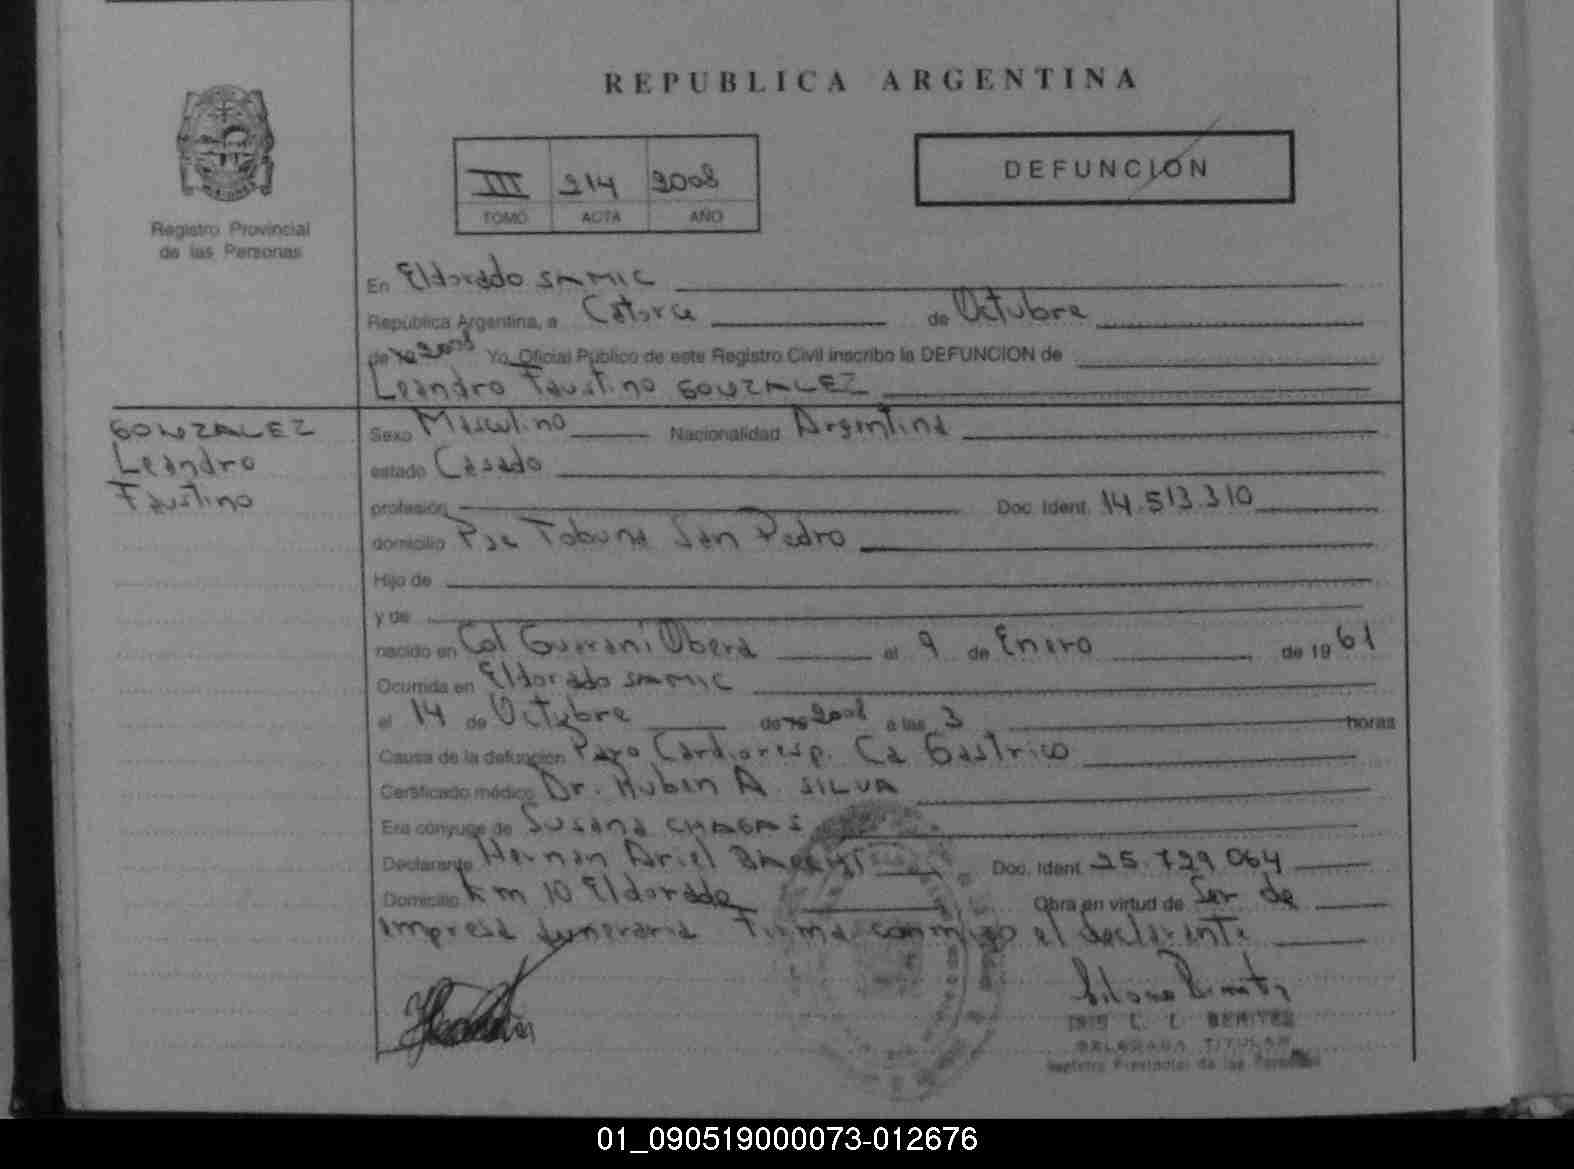 REPUBLICA ARGENTINA
Registro Provincial
de las Personas
III 214 2008
TOMO ACTA AÑO
DEFUNCION
En Eldorado SAMIC
República Argentina, a Catorce de Octubre
de 2008 Yo, Oficial Público de este Registro Civil inscribo la DEFUNCION de
Leandro Faustino GONZALEZ
GONZALEZ
Leandro
Faustino
Sexo Masculino Nacionalidad Argentina
estado Casado
profesión Doc. Ident. 14.513.310
domicilio Pje Tobuna San Pedro
Hijo de
y de
nacido en Col Guarani Obera el 9 de Enero de 1961
Ocurrida en Eldorado SAMIC
el 14 de Octubre de 2008 a las 3 horas
Causa de la defunción Paro Cardioresp. Ca Gastrico
Certificado médico Dr. Ruben A. SILVA
Era cónyuge de Susana CHAGAS
Declarante Hernan Ariel Doc. Ident. 25.729.064
Domicilio Km 10 Eldorado Obra en virtud de Ser de
empresa funeraria Firma conmigo el declarante
L. BENITEZ
DELEGADA TITULAR
Registro Provincial de las Personas
01_090519000073-012676